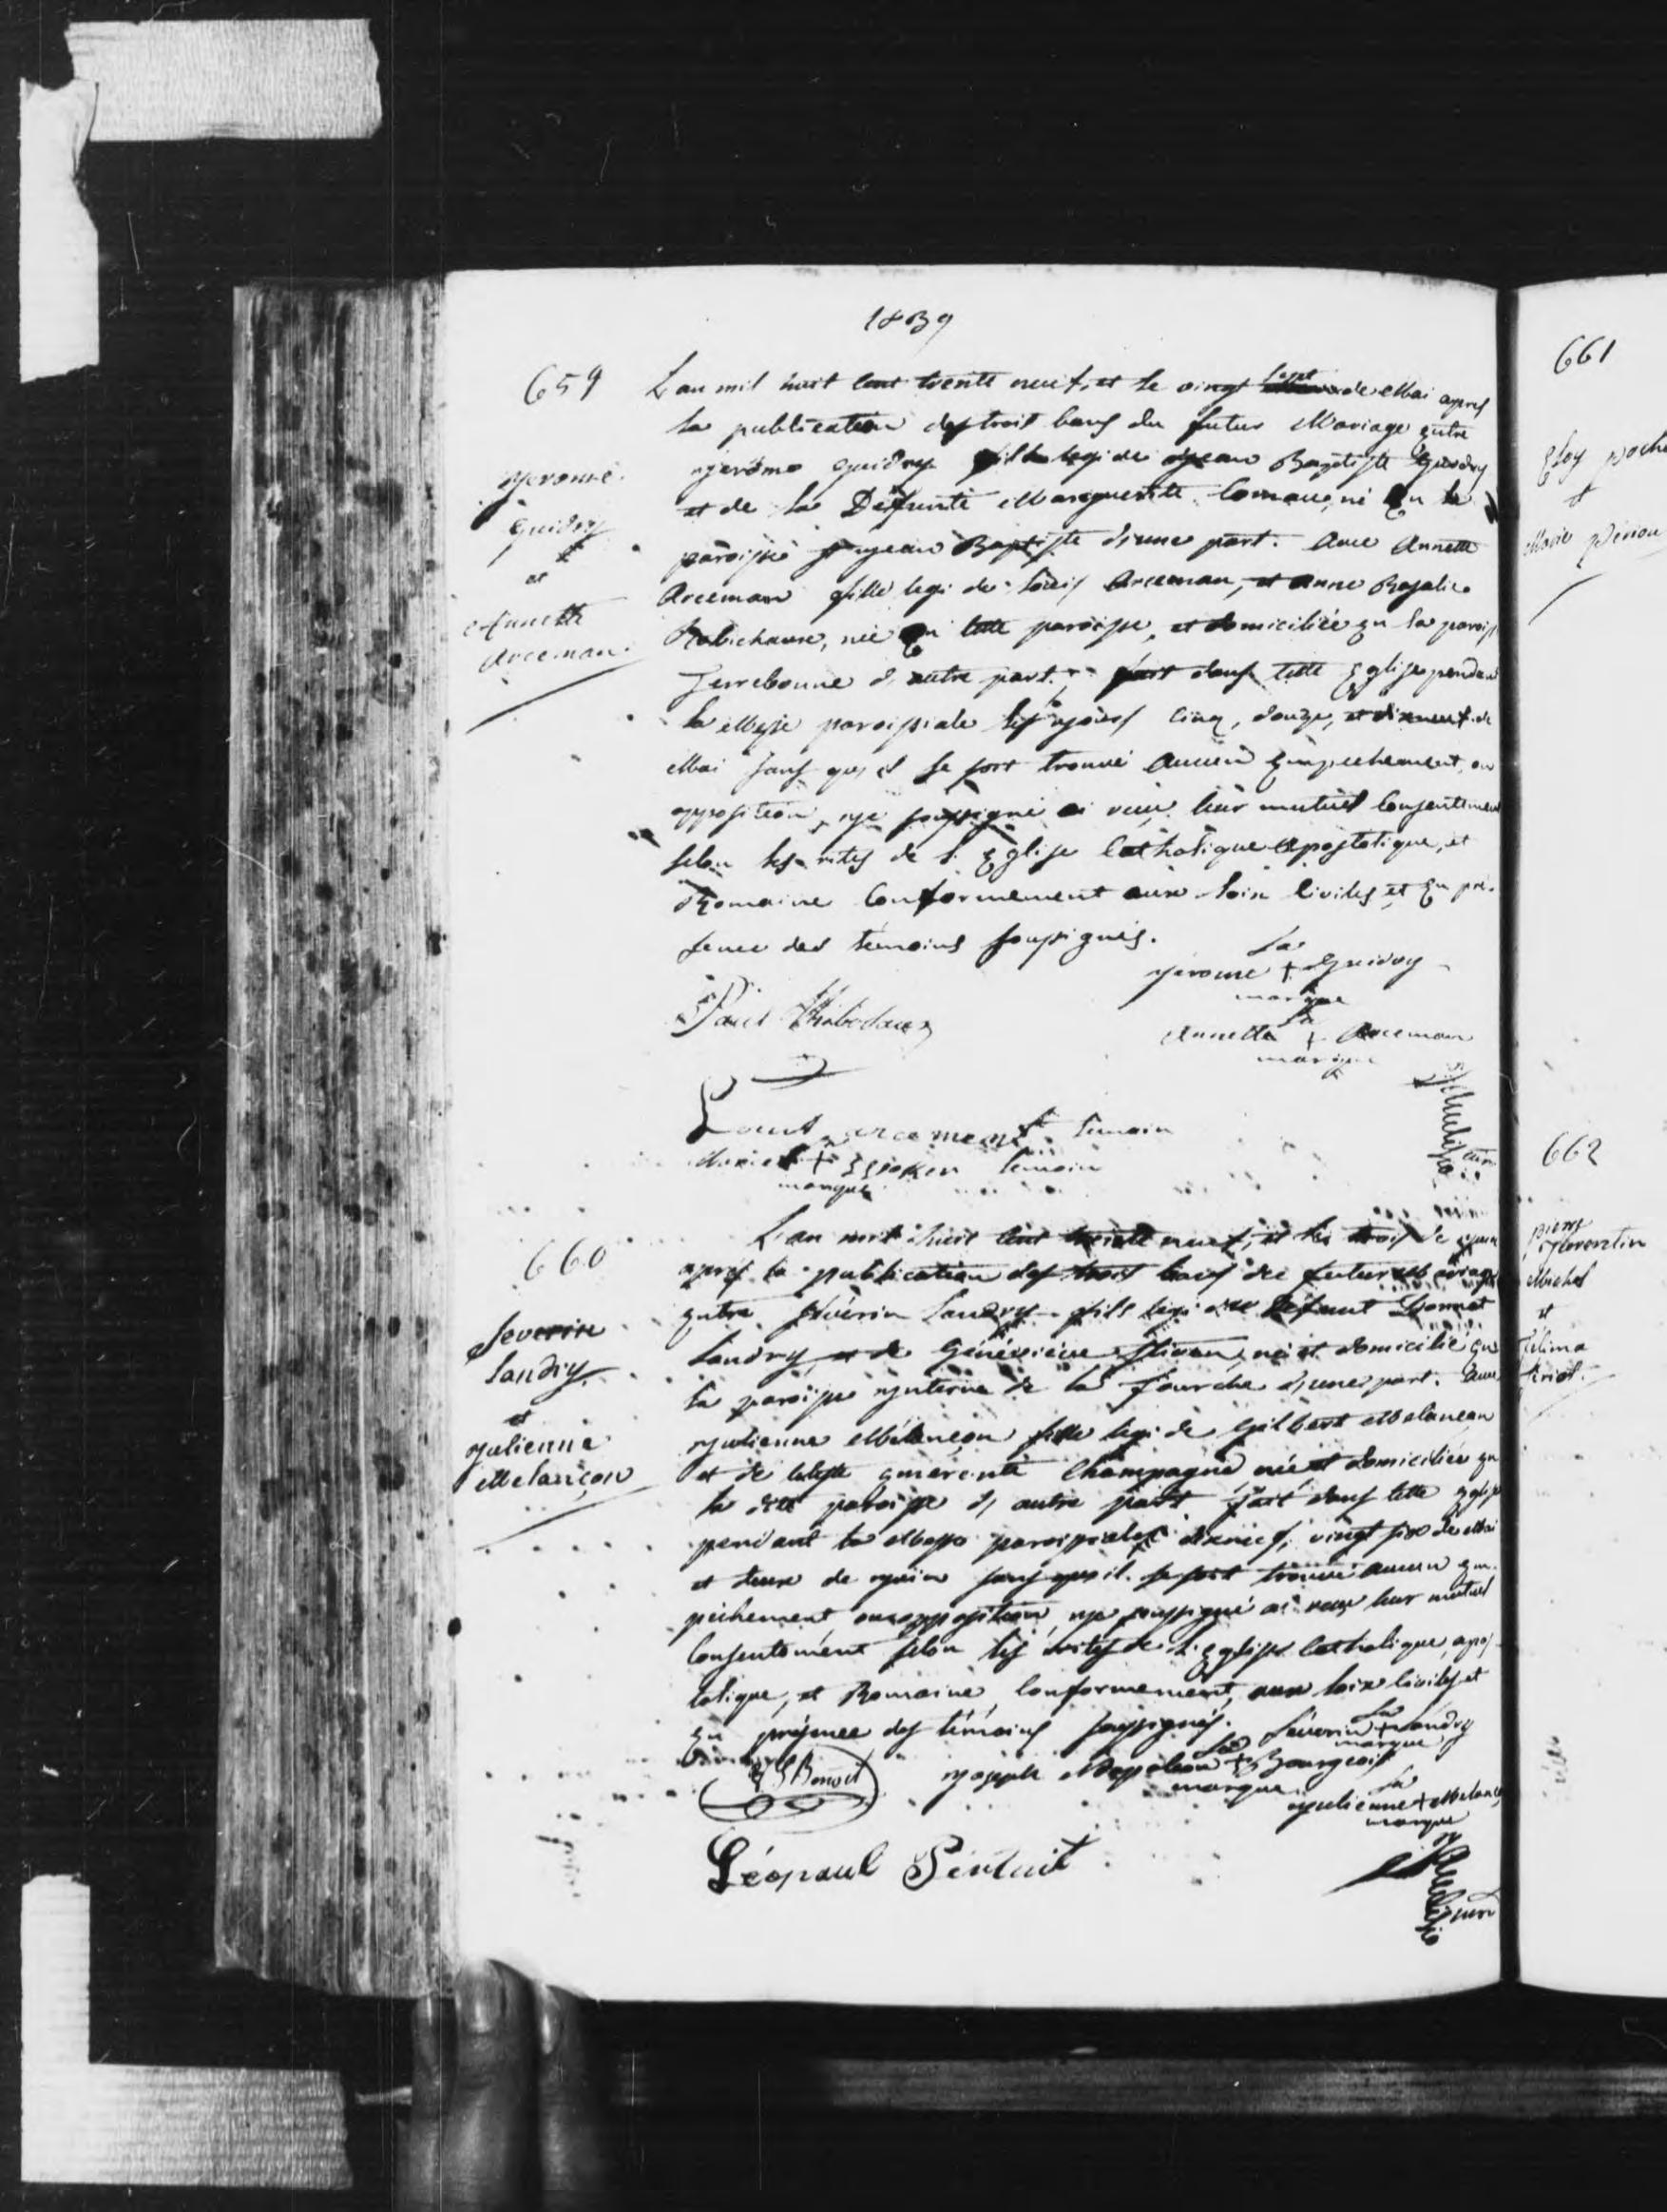 1839
659
Jerome
Guidry
et
Annette
Arceman
L'an mil huit cent trente neuf, et le vingt sept de Mai apres
la publication des trois bans du futur Mariage entre
jerôme Guidry fils legi de jean Baptiste Guidry
et de la Défunte Marguerite né En la
paroisse St jean Baptiste d'une part. Avec Annette
Arceman fille legi de Louis Arceman, et Anne Rosalie
Robichaux, née En cette paroisse, et domiciliée En la paroiss
Terrebonne d'autre part. fait dans cette Eglise pendant
la Messe paroissiale les jours cinq, douze, et dixneuf de
Mai sans qu'il se soit trouvé Aucun Empechement, ou
opposition, je soussigné ai reçu leur mutuel Consentement
selon les rites de l'Eglise Catholique Apostolique, et
Romaine Conformement aux Loix Civiles et En pré-
sence des témoins soussignés.
Sa
jerome + Guidry
marque
Paul Thibodaux
Sa
Annette + Arceman
marque
Louis arcement temoin
+ temoin
marque
curé
660
Severin
Landry
et
julienne
Melançon
L'an mil huit cent trente neuf, et le trois de juin
après la publication des trois bans du futur Mariage
Entre Séverin Landry fils legi de défunt
Landry et de Généviève né et domicilié En
la paroisse jnterieure de la fourche d'une part. Avec
julienne Mélançon fille legi de Gilbert Melancon
et de Celeste Emerente Champagne née et domiciliée En
la dite paroisse d'autre part fait dans cette Eglise
pendant la Messe paroissiale dixneuf, vingt six de Mai
et deux de juin sans qu'il se soit trouvé aucun Em-
pêchement ou opposition, je soussigné ai reçu leur mutuel
Consentement selon les rites de l'Eglise Catholique, apos-
tolique, et Romaine, Conformement, aux loix Civiles et
En présence des témoins soussignés.
Sa
Séverin + Landry
marque
Benoit
Sa
joseph Napoléon + Bourgeois
marque
Sa
julienne + Melanç
marque
Léopaul
curé
661
Eloy
et
Marie
662
pierre
florentin
Michel
et
Zelima
Teriot